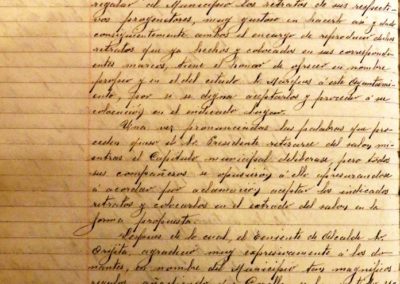 regalar al Municipio los retratos de sus respecti-
vos progenitores, muy gustoso en hacerlo así y dado
consiguientemente ambos el encargo de reproducir dichos
retratos que ya hechos y colocados en sus correspon-
dentes marcos, tiene el honor de ofrecer en nombre
propio y en el del citado Sr. á este Ayunta-
miento, por si se digna aceptarlos y proceder á su
colocación en el indicado lugar.
Una vez pronunciadas las palabras que pre-
ceden quiso el Sr. Presidente retirarse del salon mi-
entras el Capitulo municipal deliberase, pero todos
sus compañeros se opusieron á ello apresurandose
á acordar por aclamación aceptar los indicados
retratos y colocarlos en el estrado del salon en la
forma propuesta.
Despues de lo cual, el Teniente de Alcalde Sr.
agradeció muy expresivamente á los do-
nantes, en nombre del Municipio tan magníficos